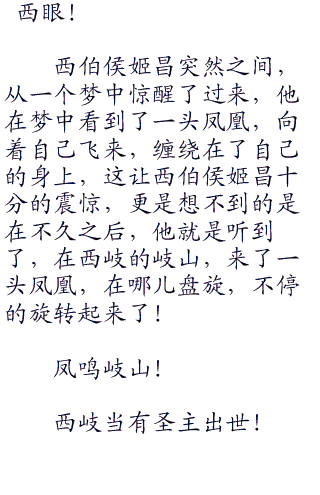 西眼！
西伯侯姬昌突然之间，
从一个梦中惊醒了过来，他
在梦中看到了一头凤凰，向
着自己飞来，缠绕在了自己
的身上，这让西伯侯姬昌十
分的震惊，更是想不到的是
在不久之后，他就是听到
了，在西岐的岐山，来了一
头凤凰，在哪儿盘旋，不停
的旋转起来了！
凤鸣岐山！
西岐当有圣主出世！